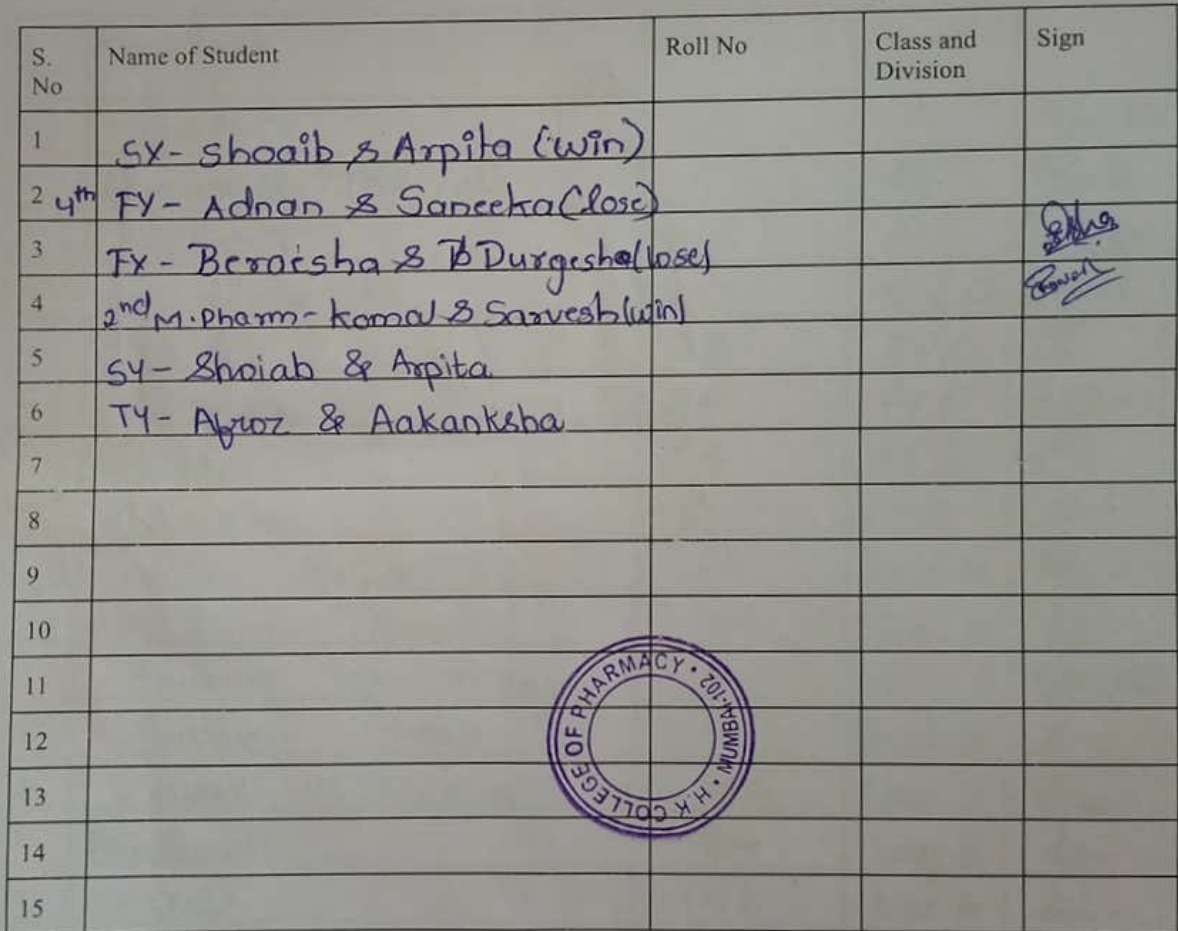 S. No Name of Student Roll No Class and Division Sign
1 SY- Shoaib & Arpita (win)
2 4th FY- Adnan & Saneeka (lose)
3 FY- & Durgesha (lose)
4 2nd M.Pharm- Komal & Sarvesh (win)
5 SY- Shoiab & Arpita
6 TY- Afroz & Aakanksha
7
8
9
10
11
12
13
14
15
H.K COLLEGE OF PHARMACY • MUMBAI-102 •